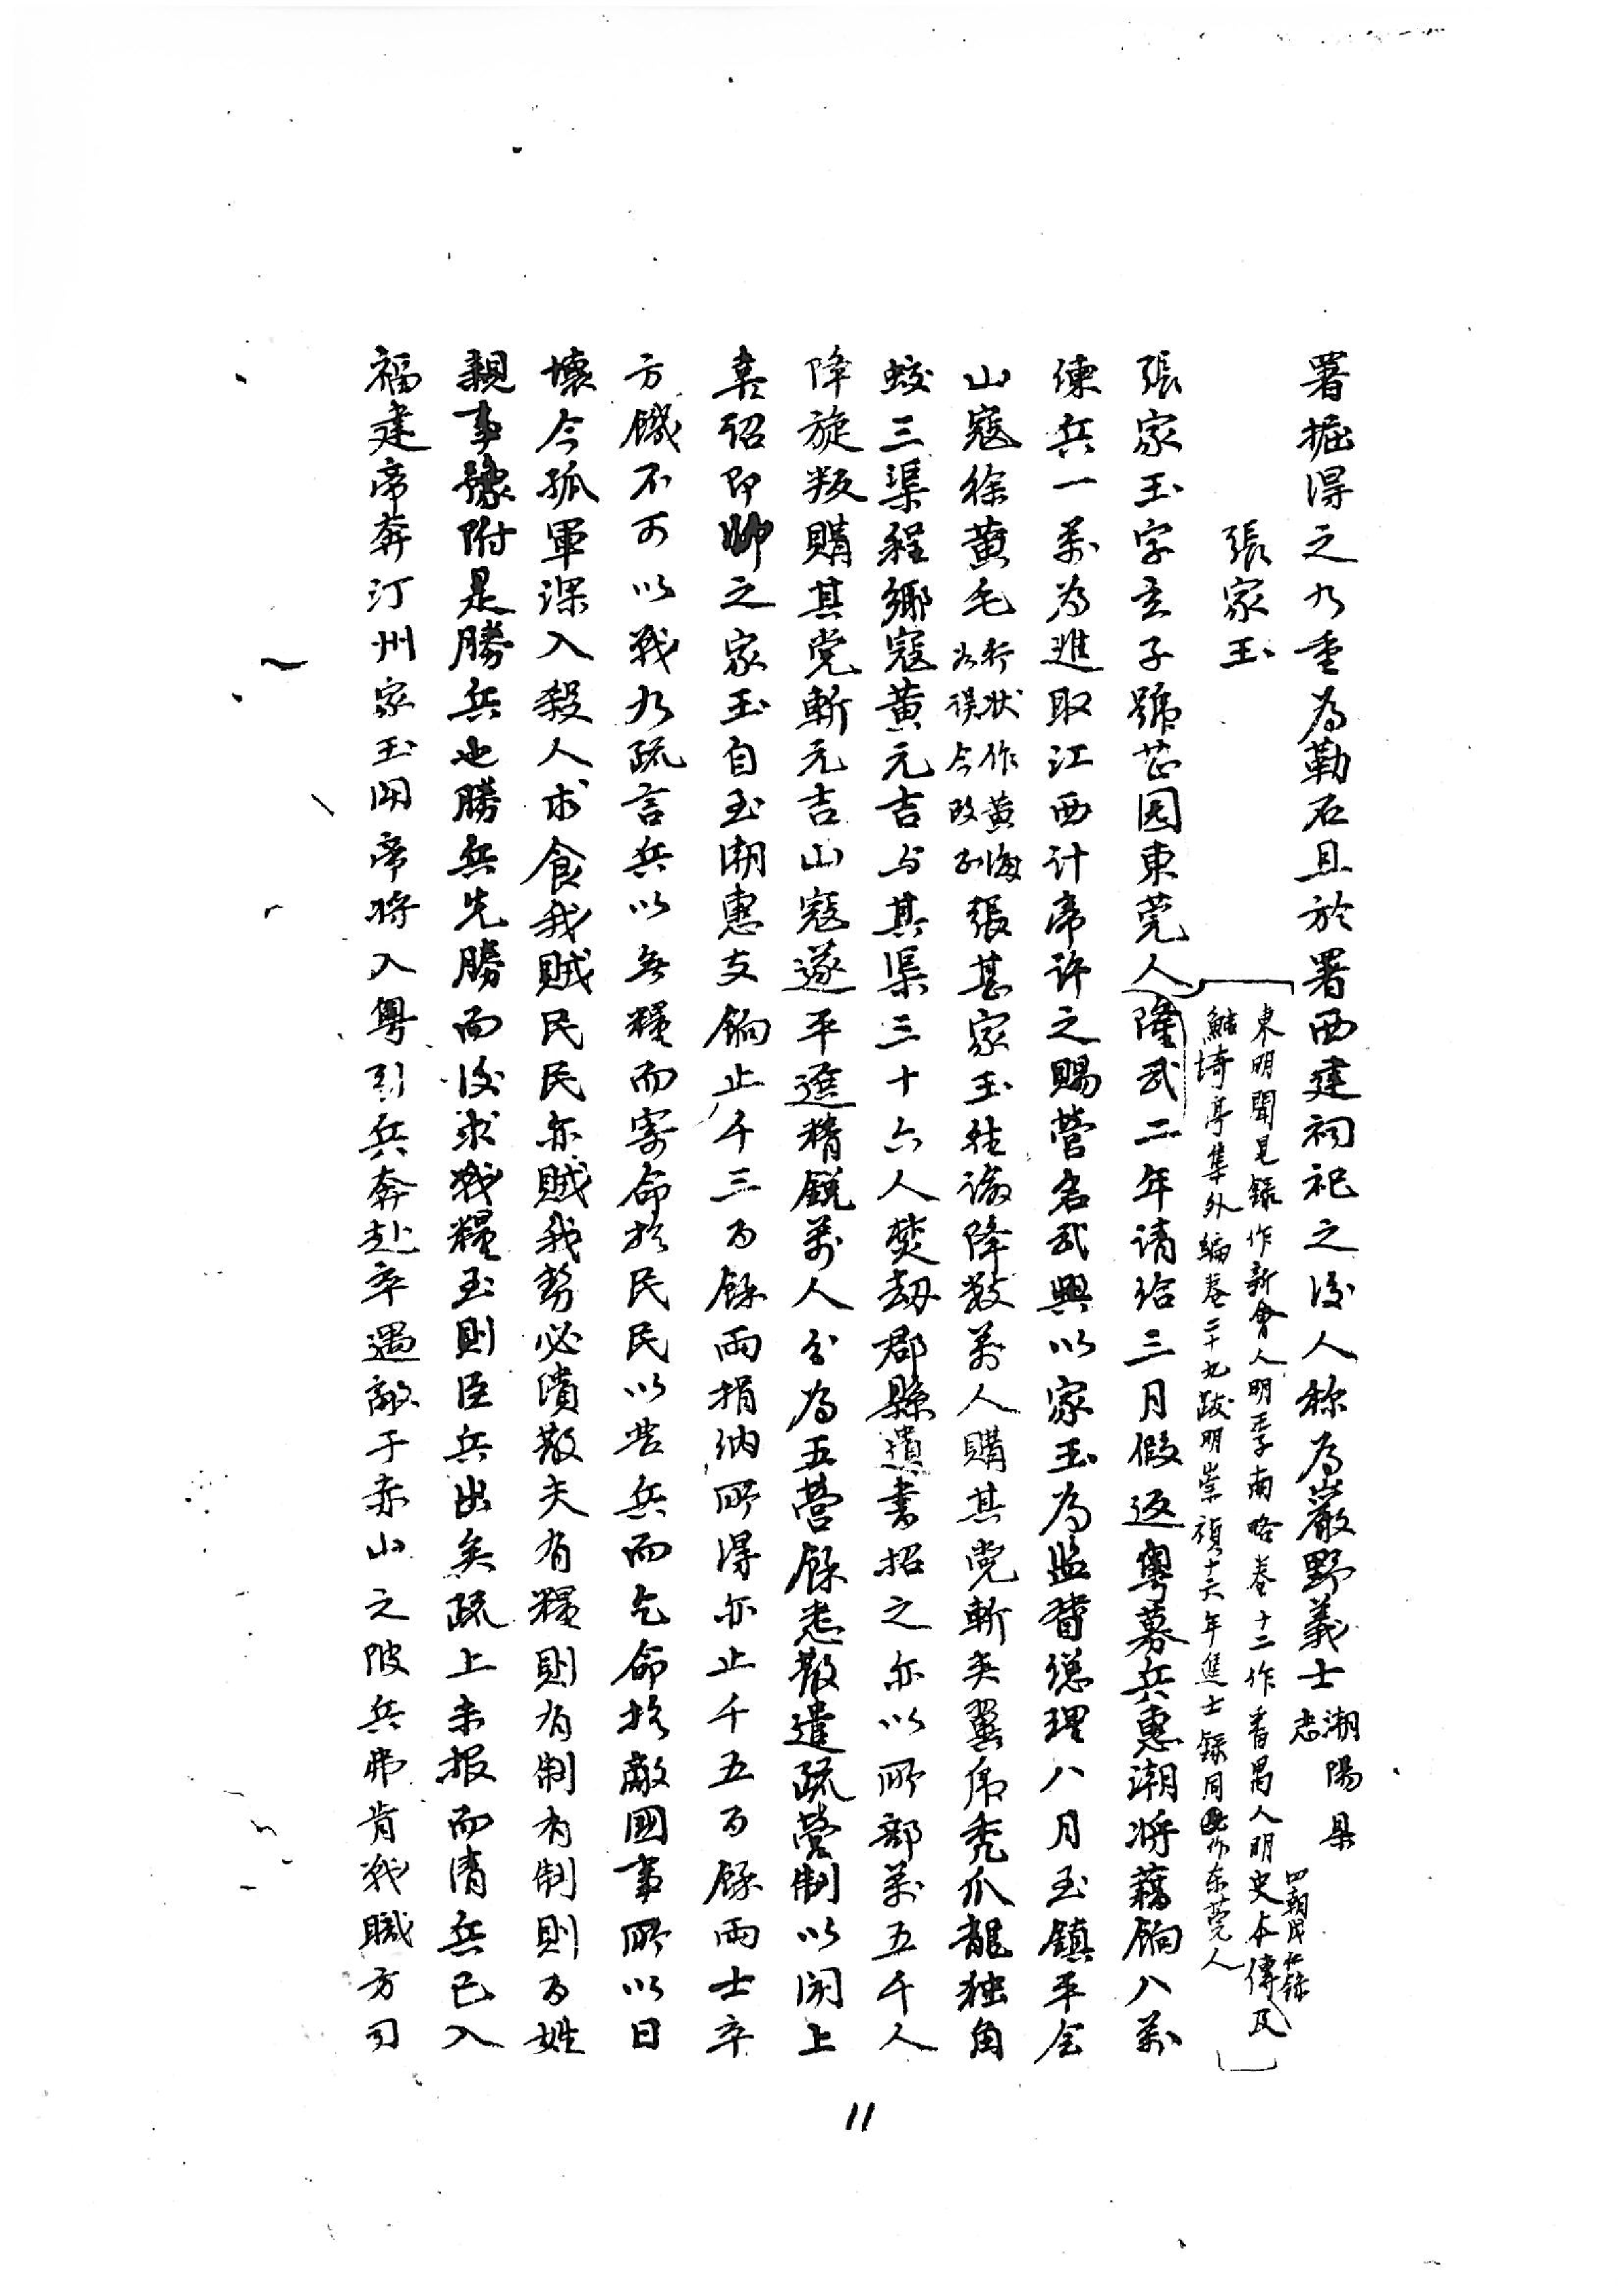 署掘得之乃重為勒石且於署西建祠祀之後人稱為巖野義士潮陽縣志
張家玉
四朝成仁錄
東明聞見錄作新會人明季南略卷十二作番禺人明史本傳及
鮚埼亭集外編卷二十九跋明崇禎十六年進士錄同作东莞人
張家玉字玄子號芷园東莞人隆武二年請给三月假返粵募兵惠潮將藉餉八萬
練兵一萬為進取江西计帝许之賜營名武興以家玉為监督總理八月至鎮平会
山寇徐黄毛行状作黄海如误今改正張甚家玉往諭降数萬人購其党斬夹翼虎秃爪龍独角
蛟三渠程鄉寇黄元吉与其渠三十六人焚刼郡縣遺書招之亦以所部萬五千人
降旋叛購其党斬元吉山寇遂平選精鋭萬人分為五營餘悉散遣疏營制以闻上
喜诏即帥之家玉自至潮惠支餉止千三百餘兩捐纳所得亦止千五百餘兩士卒
方饑不可以戰乃疏言兵以無糧而寄命於民民以苦兵而乞命於敵國事所以日
壞今孤軍深入殺人求食我賊民民亦賊我势必潰散夫有糧則有制有制則百姓
親事豫附是勝兵也勝兵先勝而後求戰糧至則臣兵出矣疏上未报而清兵已入
福建帝奔汀州家玉闻帝将入粤引兵奔赴卒遇敵于赤山之陂兵弗肯戰職方司
11